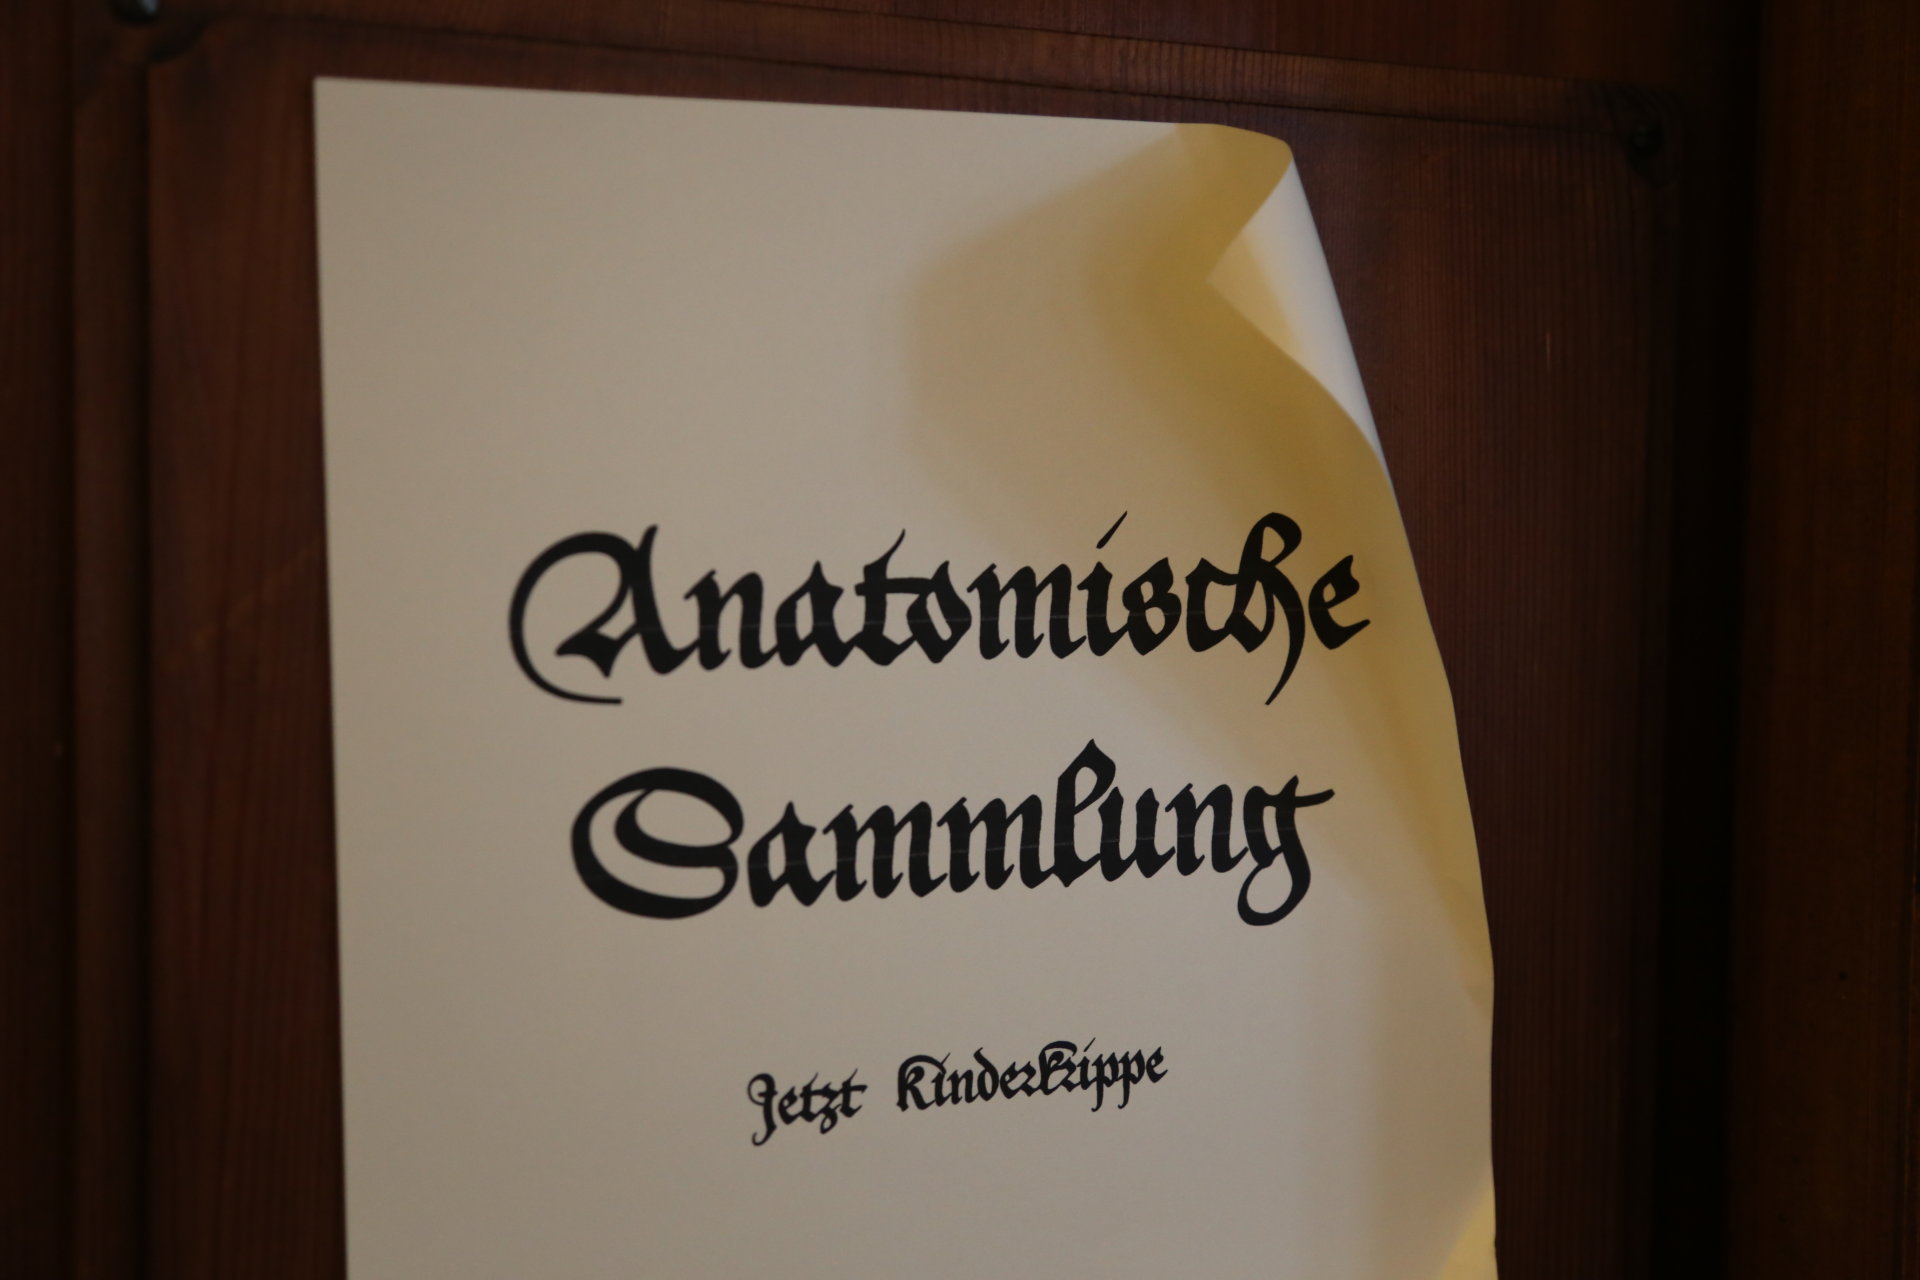 Anatomische
Sammlung
Jetzt Kinderkrippe